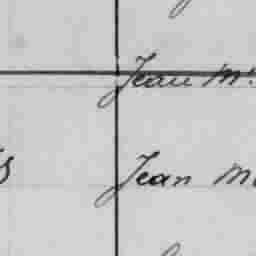 Jean Mc
Jean M